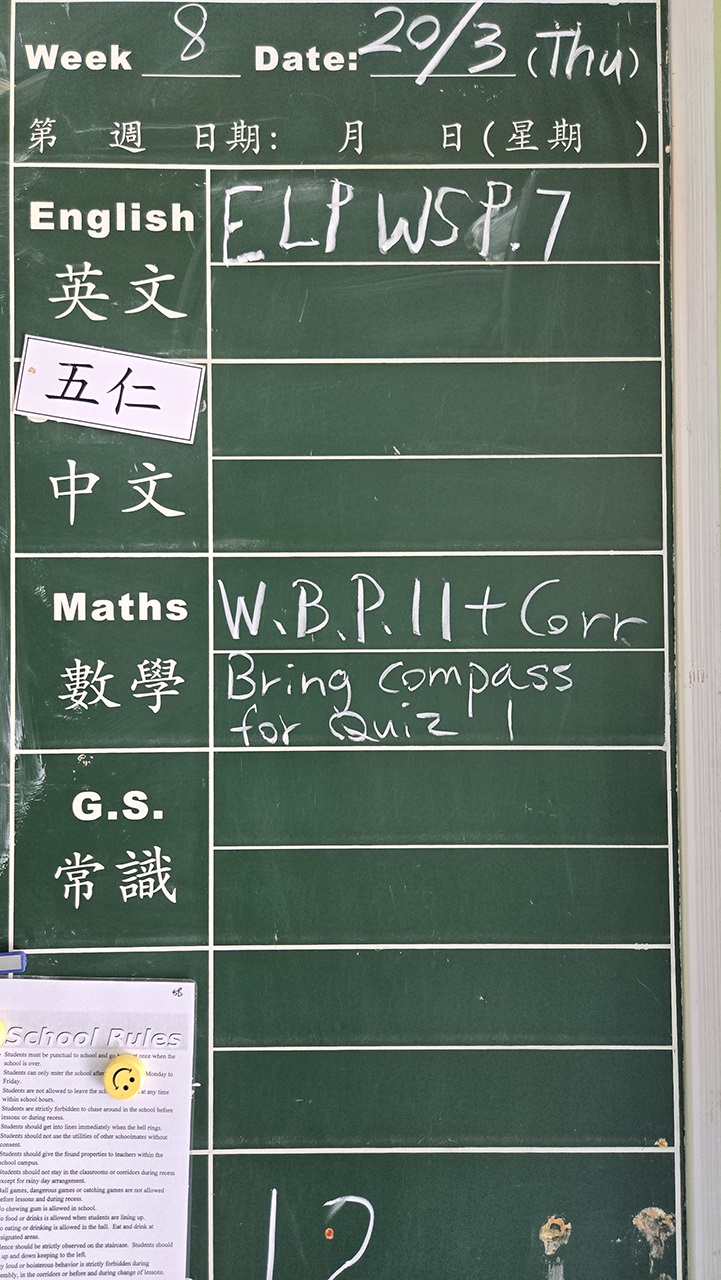 Week 8 Date: 20/3 (Thu)
第 週 日期: 月 日(星期 )
English ELP WSP.7
英文
五仁
中文
Maths W.B.P.11+Corr
數學 Bring compass
for Quiz 1
G.S.
常識
School Rules
Students must be punctual to school and go at once when the
school is over.
Students can only enter the school Monday to
Friday.
Students are not allowed to leave the at any time
within school hours.
Students are strictly forbidden to chase around in the school before
lessons or during recess.
Students should get into lines immediately when the bell rings.
Students should not use the utilities of other schoolmates without
consent.
Students should give the found properties to teachers within the
school campus.
Students should not stay in the classrooms or corridors during recess
except for rainy day arrangement.
Ball games, dangerous games or catching games are not allowed
before lessons and during recess.
No chewing gum is allowed in school.
No food or drinks is allowed when students are lining up.
No eating or drinking is allowed in the hall. Eat and drink at
designated areas.
Silence should be strictly observed on the staircase. Students should
up and down keeping to the left.
loud or boisterous behavior is strictly forbidden during
assembly, in the corridors or before and during change of lessons.